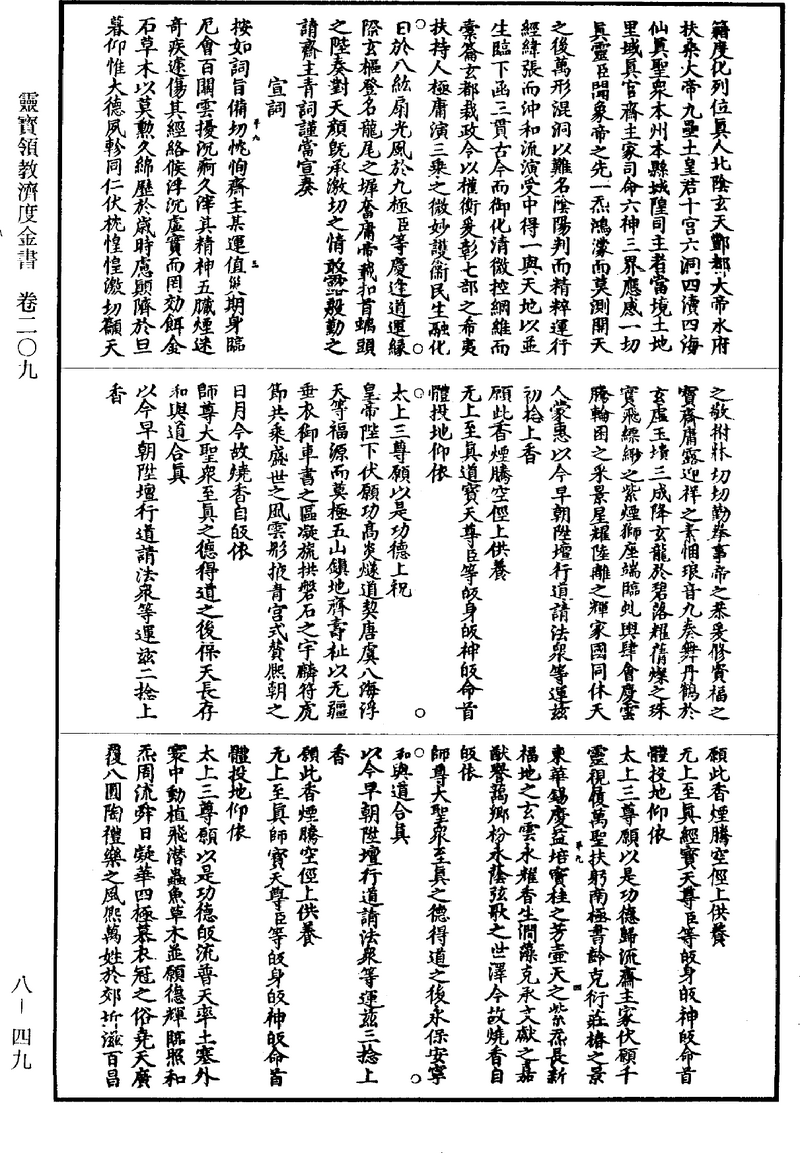 籍度化列位眞人北陰玄天酆都大帝水府
扶桑大帝九壘土皇君十宫六洞四瀆四海
仙眞聖衆本州本縣城隍司主者當境土地
里域眞官齋主家司命六神三界應感一切
眞靈臣聞象帝之先一炁鴻濛而莫測開天
之後萬形混洞以難名陰陽判而精粹運行
經緯張而沖和流演受中得一與天地以並
生臨下函三貫古今而御化清微控綱維而
槖籥玄都裁政令以權衡爰彰七部之希夷
扶持人極庸演三乘之微妙護衞民生融化
日於八紘扇光風於九極臣等慶逢道運緣
際玄樞登名龍尾之墀奮庸帝載扣首螭頭
之陛奏對天顔旣承激切之情敢諗殷勤之
請齋主青詞謹當宣奏
宣詞
按如詞旨備切恍恂齋主某運值災期身臨
厄會百關雲擾沉痾久滓其精神五臟煙迷
奇疾遽傷其經絡候浮沉虛實而罔効餌金
石草木以莫勲久綿歷於歲時慮顛隮於旦
暮仰惟大德夙軫同仁伏枕惶惶激切籲天
之敬拊牀切切勤拳事帝之恭爰修賚福之
寳齋庸露迎祥之素悃琅音九奏舞丹鶴於
玄虛玉墳三成降玄龍於碧落耀蒨燦之珠
寳飛縹緲之紫煙獅座端臨虬輿肆會慶雲
騰輪囷之采景星耀陸離之輝家國同休天
人蒙惠以今早朝陞壇行道請法衆等運兹
初捻上香
願此香煙騰空徑上供養
无上至眞道寳天尊臣等皈身皈神皈命首
體投地仰依
太上三尊願以是功德上祝
皇帝陛下伏願功髙炎燧道契唐虞八海浮
天等福源而奠極五山鎮地齊壽祉以无疆
垂衣御車書之區凝旒拱磐石之宇麟符虎
節共乘盛世之風雲彤掖青宫式賛熈朝之
日月今故燒香自皈依
師尊大聖衆至眞之德得道之後禄天長存
和與道合眞
以今早朝陞壇行道請法衆等運兹二捻上
香
願此香煙騰空徑上供養
无上至眞經寳天尊臣等皈身皈神皈命首
體投地仰依
太上三尊願以是功德歸流齋主家伏願千
靈視履萬聖扶躬南極書齡克衍莊椿之景
東華錫慶益培竇桂之芳壷天之紫炁長新
福地之玄雲永耀香生澗藻克承文獻之嘉
猷譽藹鄉枌永蔭弦歌之世澤今故燒香自
皈依
師尊大聖衆至眞之德得道之後永保安寧
和與道合眞
以今早朝陞壇行道請法衆等運兹三捻上
香
願此香煙騰空徑上供養
无上至眞師寳天尊臣等皈身皈神皈命首
體投地仰依
太上三尊願以是功德皈流普天率土塞外
寰中動植飛潛蟲魚草木並願德輝臨照和
炁周流舜日凝華四極慕衣冠之俗堯天廣
覆八圓陶禮樂之風熈萬姓於郊圻滋百昌
靈寳領教濟度金書 卷二〇九
八－四九